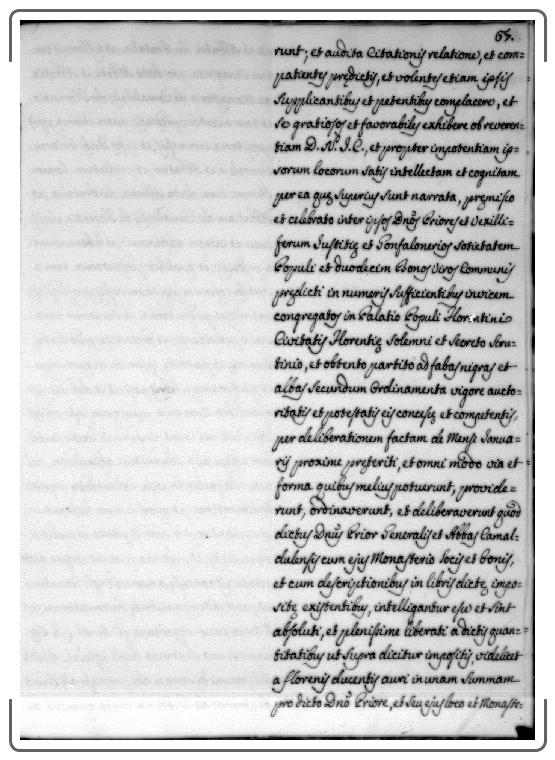 65.
runt; et audita Citationis relatione, et com=
patientes prędictis, et volentes etiam ipsis
Supplicantibus et petentibus complacere, et
se gratiosos et favorabiles exhibere ob reveren=
tiam D. N. J. C., et propter impotentiam ip=
sorum locorum satis intellectam et cognitam
per ea quę superius sunt narrata, pręmisso
et celebrato inter ipsos Dños Priores et Vexilli=
ferum Justitię et Gonfalonerios Societatem
Populi et duodecim Bonos viros Communis
prędicti in numeris sufficientibus invicem
congregatos in Palatio Populi Florentini
Civitatis Florentię solemni et secreto scru=
tinio, et obtento partito ad fabas nigras et
albas secundum Ordinamenta vigore aucto=
ritatis et potestatis eis concessę et competentis,
per deliberationem factam de Mense Janua=
rij proxime pręteriti, et omni modo via et
forma quibus melius potuerunt, provide=
runt, ordinaverunt, et deliberaverunt quod
dictus Dnus Prior Generalis et Abbas Camal=
dulensis cum ejus Monasterio locis et bonis,
et cum descriptionibus in libris dictę impo=
sitę existentibus, intelligantur esse et sint
absoluti, et plenissime liberati a dictis quan=
titatibus ut supra dicitur impositis, videlicet
a florenis ducentis auri in unam summam
pro dicto Dno Priore, et seu ejus loco et Monaste=